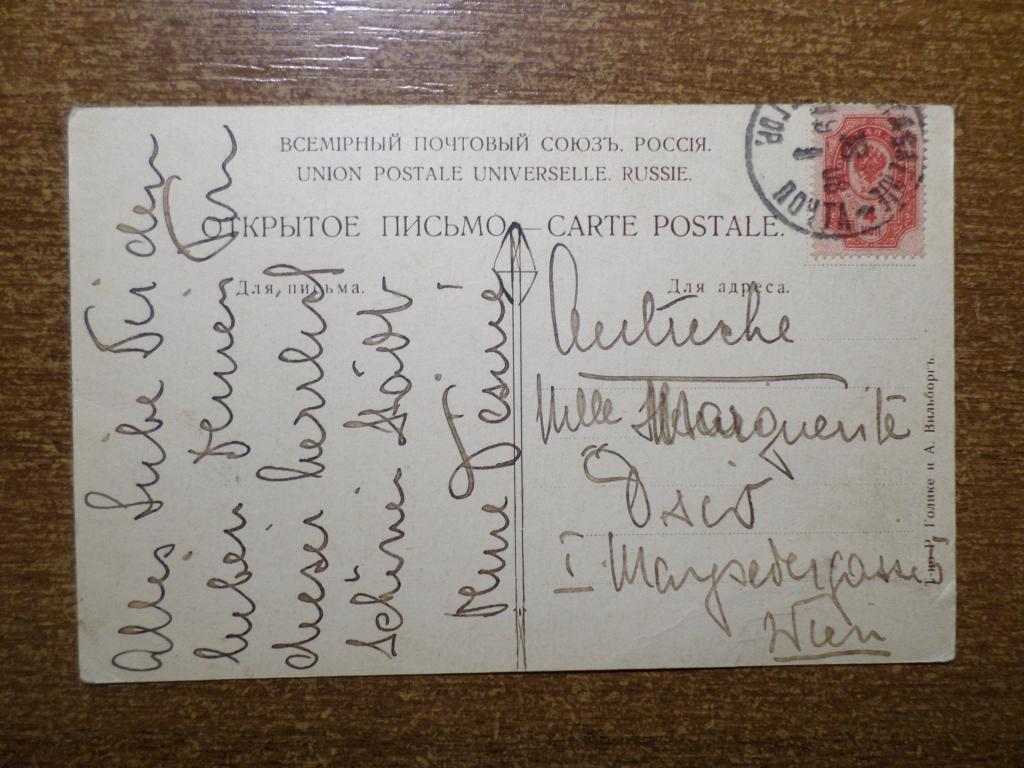 ВСЕМІРНЫЙ ПОЧТОВЫЙ СОЮЗЪ. РОССІЯ.
UNION POSTALE UNIVERSELLE. RUSSIE.
ОТКРЫТОЕ ПИСЬМО — CARTE POSTALE.
Для письма.
Для адреса.
Alles Liebe Dir
lieben
dieser herrlich
schönen Stadt
Autriche
Mlle Marguerite
I. Maysedergasse 5
Wien
Р. Голике и А. Вильборгъ.
ПОЧТА
4
КОП